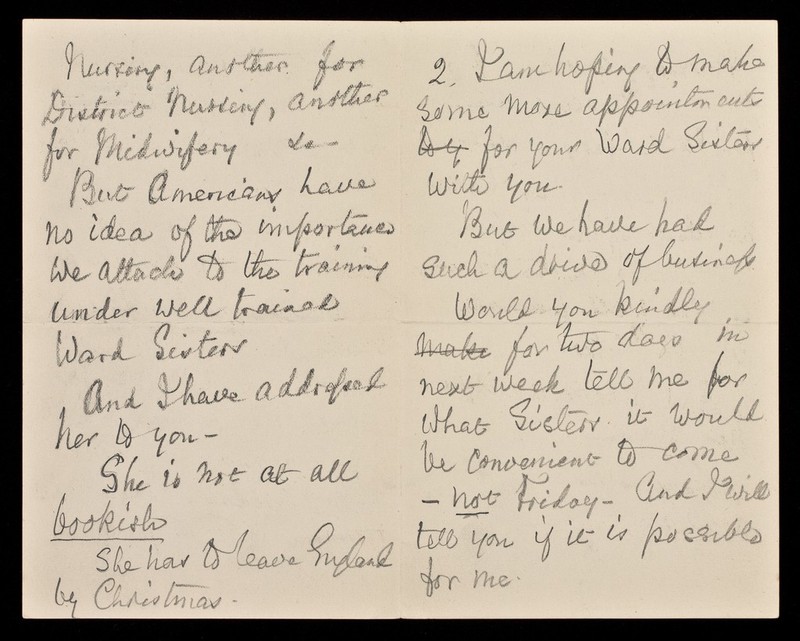 Nursing, another for
District Nursing, another
for Midwifery &c -
But Americans have
no idea of the importance
we attach to the training
under well trained
Ward Sisters
And I have addressed
her to you -
She is not at all
bookish
She has to leave England
by Christmas -
2. I am hoping to make
some more appointments
for your Ward Sisters
with you.
But we have had
such a drive of business
Would you kindly
make for two days in
next week tell me for
what Sisters it would
be convenient to come
- not Friday - And I will
tell you if it is possible
for me.